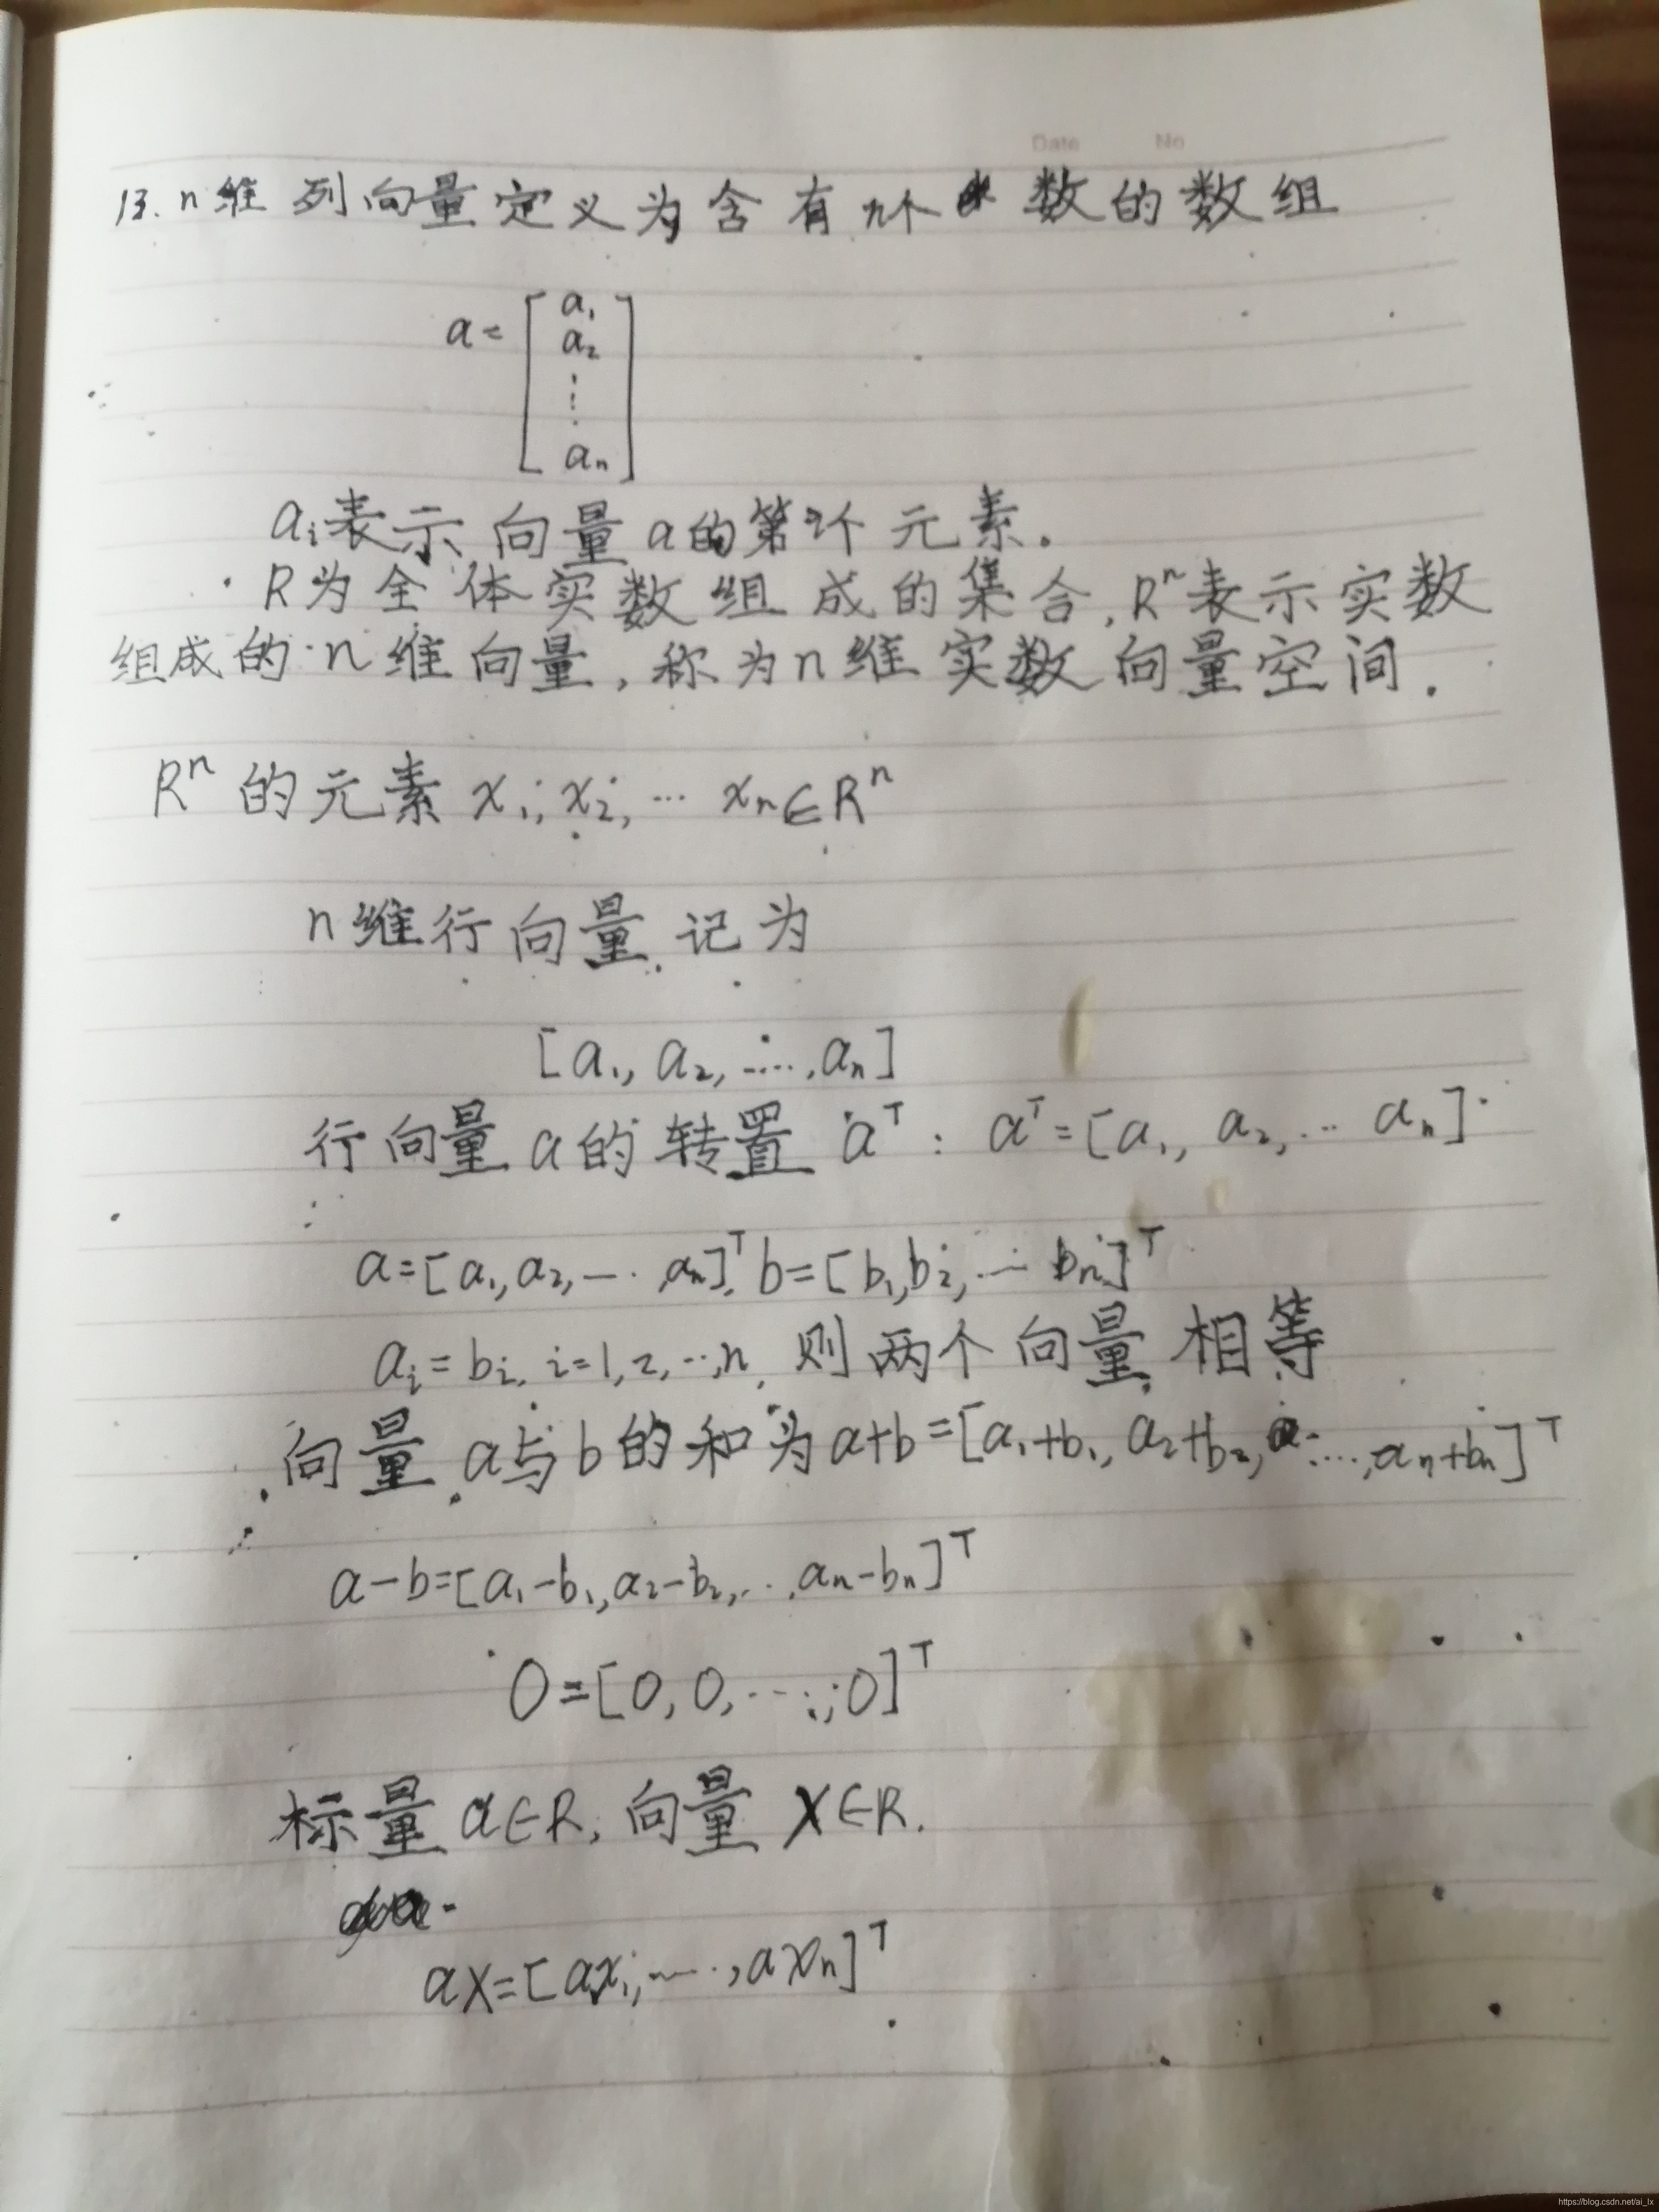 Date No
13. n维 列向量定义为含有n个 数的数组
a = [ a₁
a₂
⋮
aₙ ]
aᵢ表示向量a的第i个元素.
· R为全体实数组成的集合, Rⁿ表示实数
组成的n维向量, 称为n维实数向量空间.
Rⁿ的元素 x₁, x₂, … xₙ∈Rⁿ
n维行向量记为
[a₁, a₂, ……, aₙ]
行向量a的转置 aᵀ: aᵀ=[a₁, a₂, … aₙ]
a=[a₁, a₂, …, aₙ]ᵀ, b=[b₁, b₂, … bₙ]ᵀ
aᵢ=bᵢ, i=1,2,…,n, 则两个向量相等
向量a与b的和为a+b=[a₁+b₁, a₂+b₂, …, aₙ+bₙ]ᵀ
a-b=[a₁-b₁, a₂-b₂, …, aₙ-bₙ]ᵀ
0=[0, 0, …, 0]ᵀ
标量 a∈R, 向量 X∈R.
aX=[ax₁, …, axₙ]ᵀ
https://blog.csdn.net/ai_lx